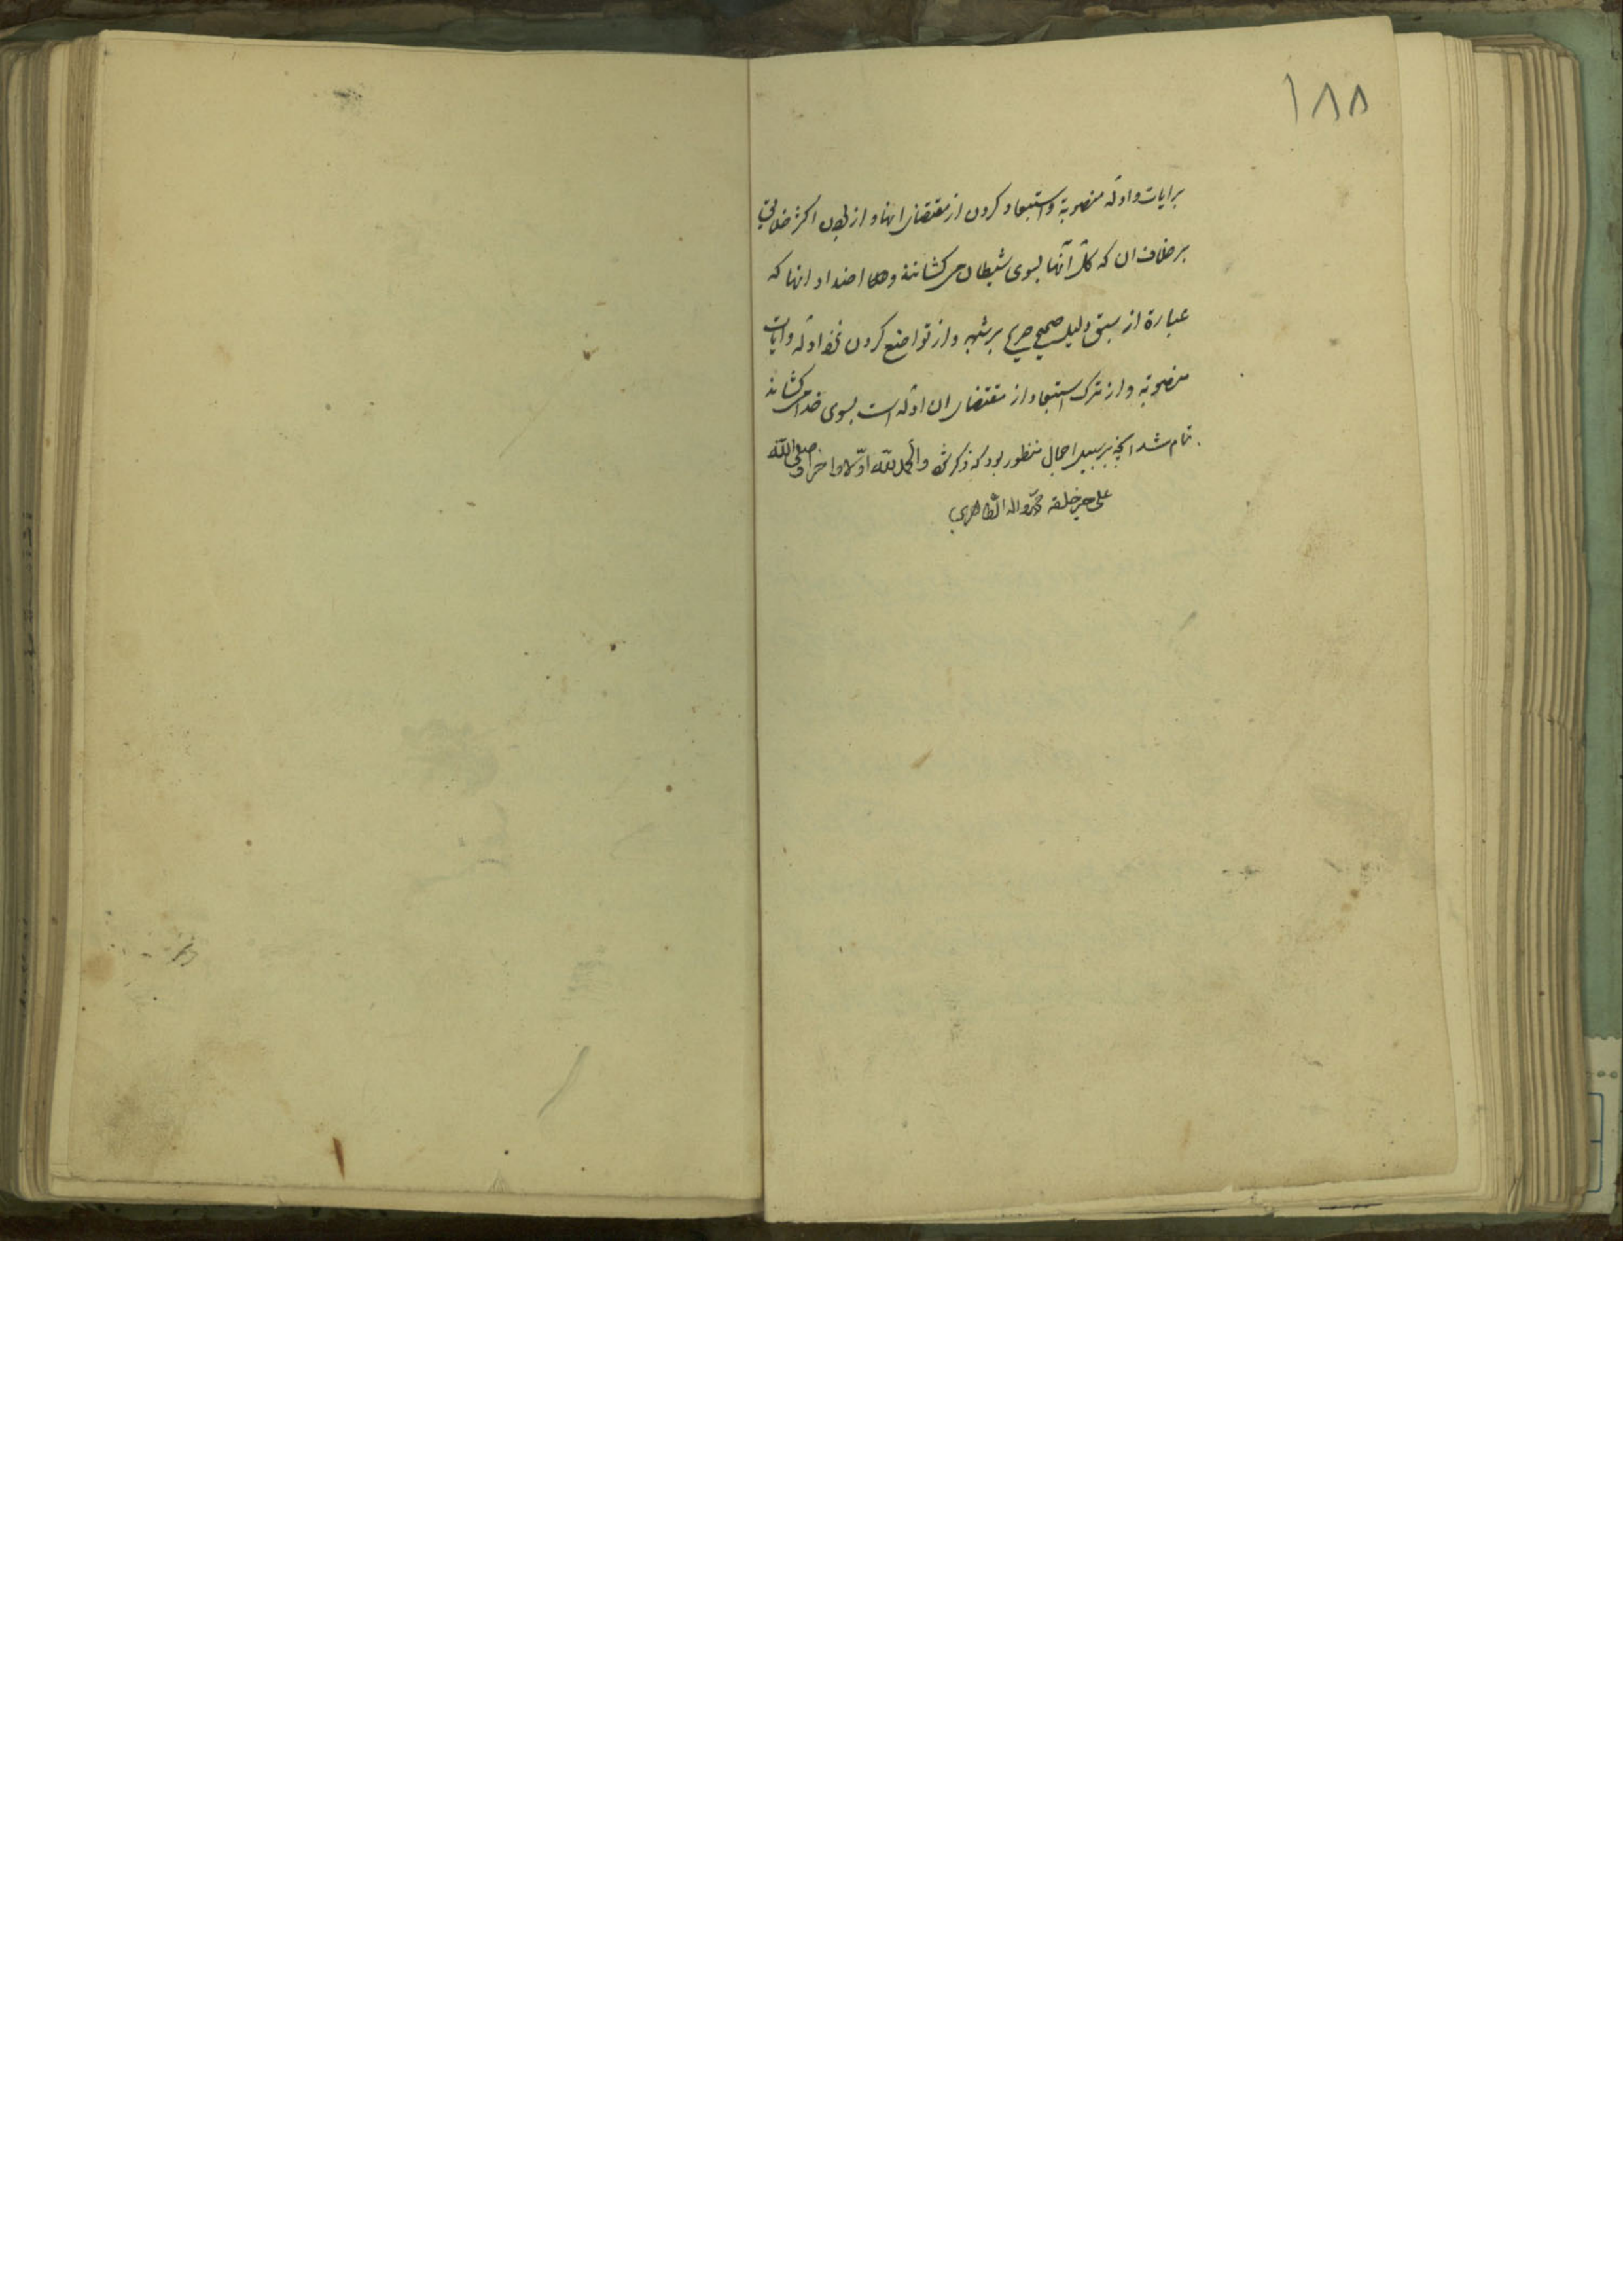 ۱۸۸
برایات و ادله منصوبة و استبعاد کردن از مقتضای انها و از بودن اکثر خلایق
بر خلاف ان که کل آنها بسوی شیطان می کشانند و همه اضداد انها که
عبارة از سبق دلیل صحیح صریح بر شبهه و از تواضع کردن نزد ادله و ایات
منصوبة و از ترک استبعاد از مقتضای ان ادله است بسوی خدا می کشاند
تمام شد انچه بر سبیل اجمال منظور بود که ذکر شود والحمد لله اوّلا و اخرا و صلی الله
علی خیر خلقه محمّد و اله الطّاهرین